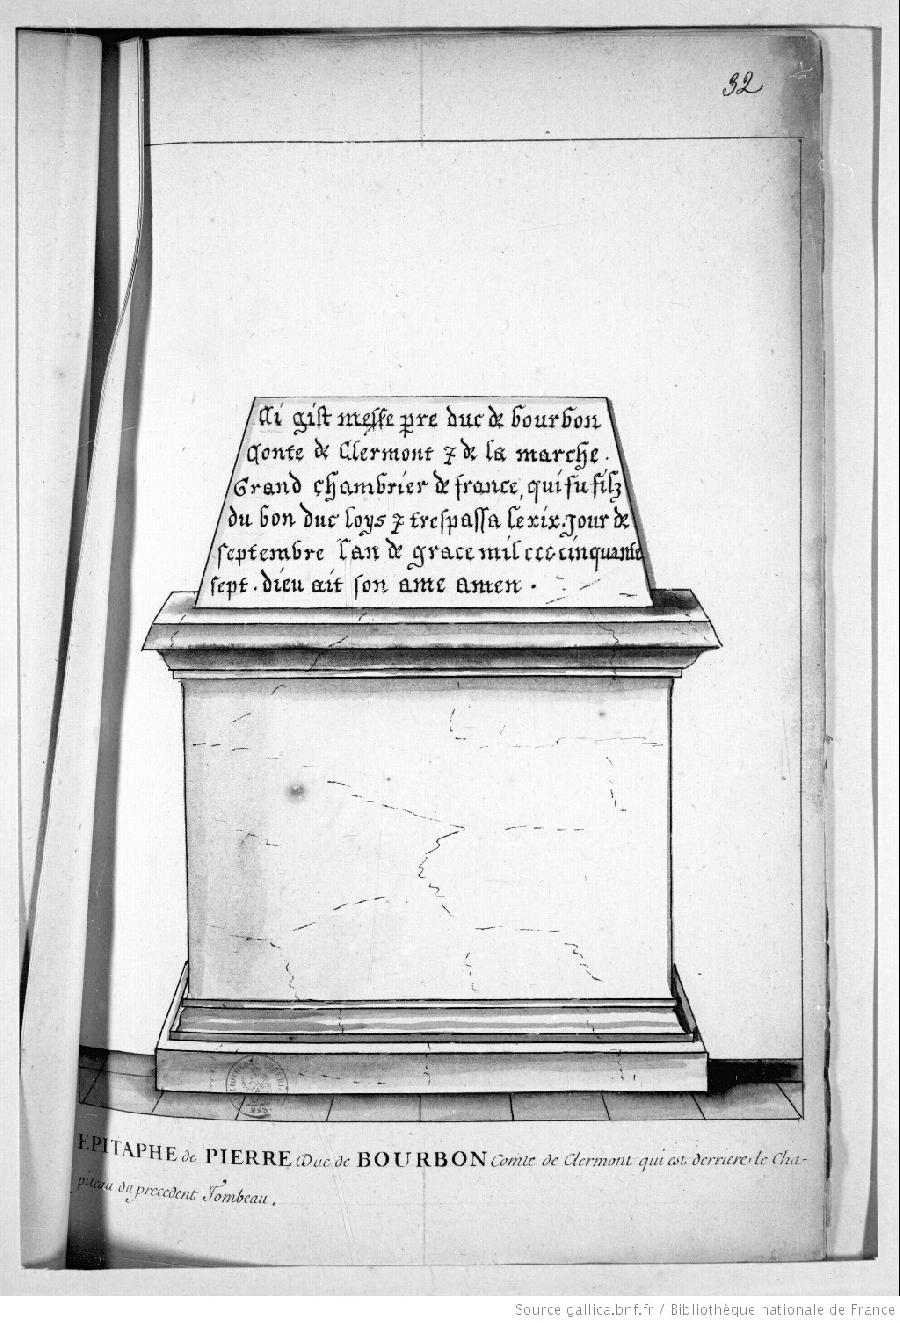 32
Ci gist messe pre duc de bourbon
Conte de Clermont & de la marche.
Grand chambrier de france, qui fu filz
du bon duc loys & trespassa le xix. jour de
septembre l'an de grace mil ccc cinquante
sept. dieu ait son ame amen.
EPITAPHE de PIERRE Duc de BOURBON Comte de Clermont qui est derriere le Cha-
piteau du precedent Tombeau.
Source gallica.bnf.fr / Bibliothèque nationale de France